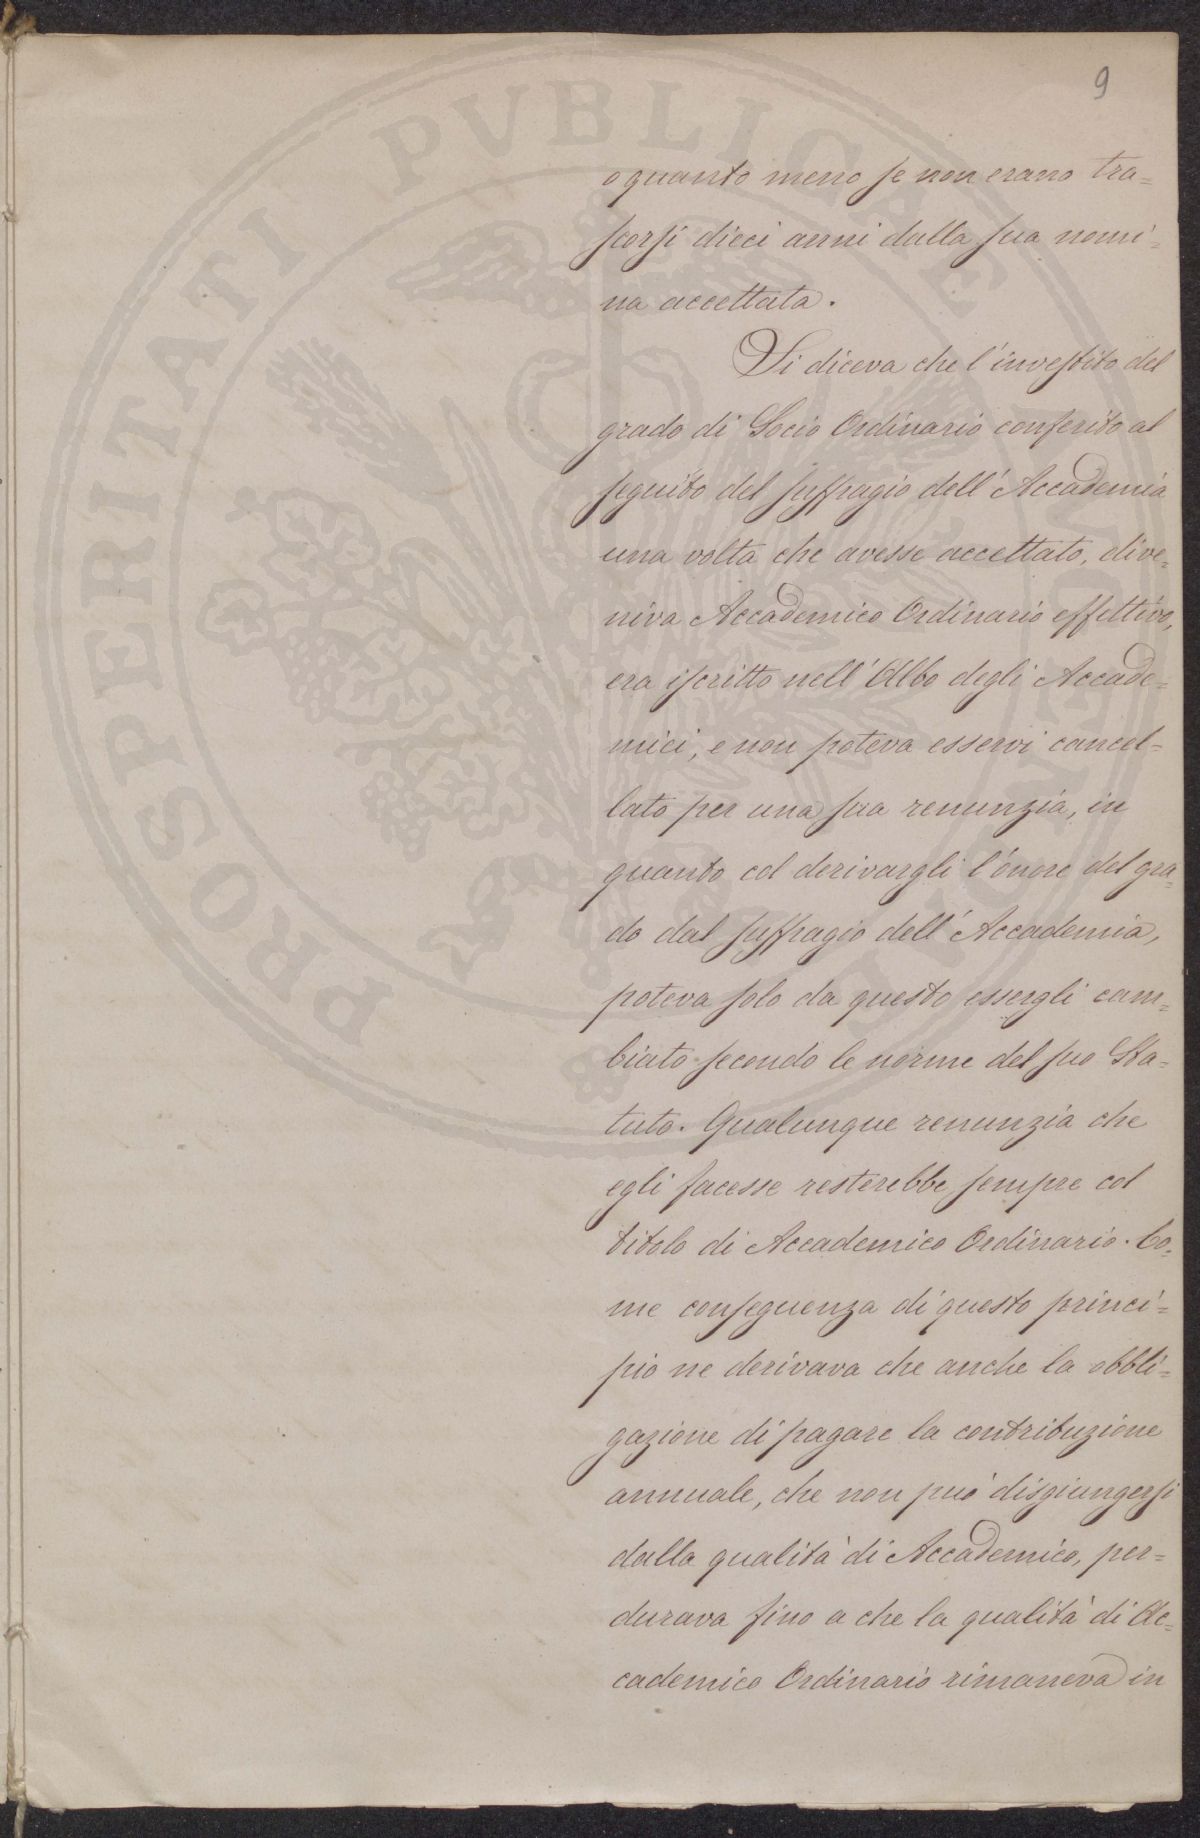 9
o quanto meno se non erano tra=
scorsi dieci anni dalla sua nomi=
na accettata.
Si diceva che l'investito del
grado di Socio Ordinario conferito al
seguito del suffragio dell'Accademia
una volta che avesse accettato, dive=
niva Accademico Ordinario effettivo,
era iscritto nell'Albo degli Accade=
mici, e non poteva esservi cancel=
lato per una sua renunzia, in
quanto col derivargli l'onore del gra=
do dal suffragio dell'Accademia,
poteva solo da questo essergli cam=
biato secondo le norme del suo Sta=
tuto. Qualunque renunzia che
egli facesse resterebbe sempre col
titolo di Accademico Ordinario. Co=
me conseguenza di questo princi=
pio ne derivava che anche la obbli=
gazione di pagare la contribuzione
annuale, che non può disgiungersi
dalla qualità di Accademico, per=
durava fino a che la qualità di Ac=
cademico Ordinario rimaneva in
PROSPERITATI PVBLICAE